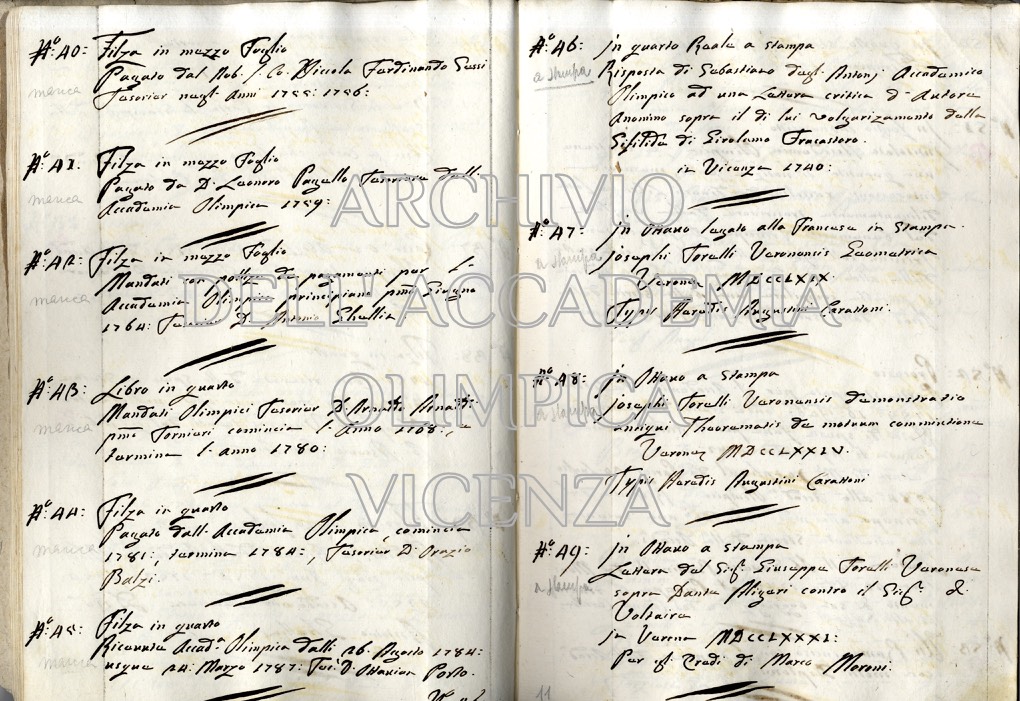 N.º 40: Filza in mezzo Foglio
Pagato dal Nob. S. Co. Niccola Ferdinando Sessi
manca
Tesorier negl. Anni 1755: 1756:
N.º 41. Filza in mezzo Foglio
manca
Pagato da D. Leonoro Pagello Tesoriero dell.
Accademia Olimpica 1759:
N.º 42. Filza in mezzo Foglio
Mandati con polize de pagamenti per l.
manca
Accademia Olimpica principiano pmo Giugno
1764: D. Antonio Ghellin
N.º 43: Libro in quarto
manca
Mandati Olimpici Tesorier
pmo Torniari comincia l. Anno 1768:, e
termina l. anno 1780:
N.º 44: Filza in quarto
manca
Pagato dall. Accademia Olimpica, comincia
1781:, termina 1784:, Tesorier D. Orazio
Balzi.
N.º 45: Filza in quarto
manca
Ricevute Accad.ª Olimpica dalli 26. Agosto 1784:
usque 24: Marzo 1787: Tes. D. Ottavian Porto.
N.º 46: jn quarto Reale a stampa
a stampa
Risposta di Sebastiano degl. Antonj Accademico
Olimpico ad una Lettera critica d' Autore
Anonimo sopra il di lui volgarizamento della
Sifilide di Girolamo Fracastoro.
in Vicenza 1740:
N.º 47: jn Ottavo legato alla Francese in stampa.
a stampa
josephi Torelli Veronensis Geometrica
Veronæ MDCCLXIX.
Typis Heredis Augustini Carattoni.
nº N.º 48: jn Ottavo a stampa
a stampa
josephi Torelli Veronensis demonstratio
antiqui Theorematis de motuum commixtione
Veronæ MDCCLXXIV.
Typis Heredis Augustini Carattoni
N.º 49: jn Ottavo a stampa
a stampa
Lettera del Sigr. Giuseppe Torelli Veronese
sopra Dante Aligeri contro il Sigr. di
Voltaire
jn Verona MDCCLXXXI:
Per gl. Eredi di Marco Moroni.
11
ARCHIVIO
DELL'ACCADEMIA
OLIMPICA
VICENZA